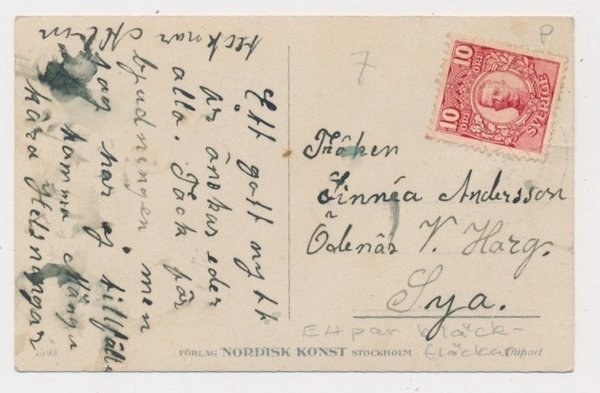 Ett gott nytt
år önskas eder
alla. Tack för
bjudningen men
jag har ej tillfälle
komma Många
kära Helsningar
tecknar
7
P
10 10
ÖRE ÖRE
SVERIGE
Fröken
Linnéa Andersson
Ödenäs V. Harg.
Sya.
Ett par bläck-
fläckar
FÖRLAG NORDISK KONST STOCKHOLM
Import